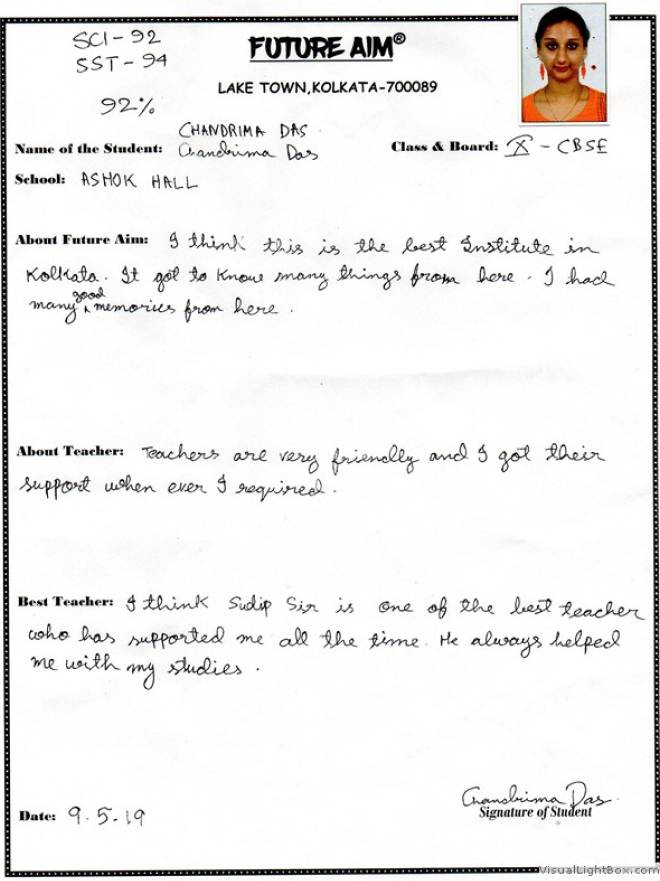 SCI - 92
SST - 94
92%
FUTURE AIM®
LAKE TOWN,KOLKATA-700089
CHANDRIMA DAS.
Name of the Student: Chandrima Das
Class & Board: X - CBSE
School: ASHOK HALL
About Future Aim: I think this is the best Institute in
Kolkata. It got to know many things from here. I had
many good memories from here.
About Teacher: Teachers are very friendly and I got their
support when ever I required.
Best Teacher: I think Sudip Sir is one of the best teacher
who has supported me all the time. He always helped
me with my studies.
Chandrima Das.
Signature of Student
Date: 9.5.19
VisualLightBox.com